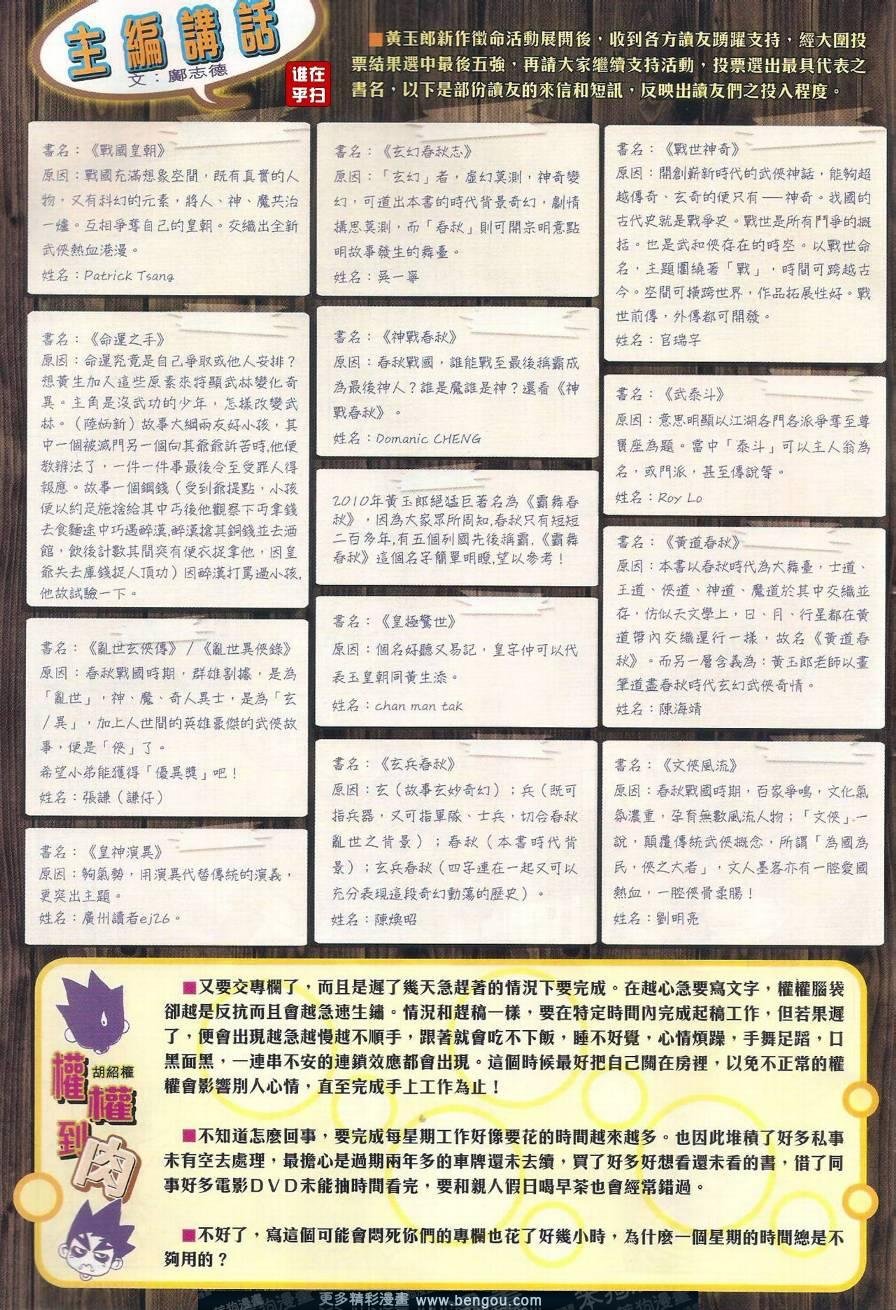 主編講話
文：鄺志德
誰在
乎扫
■黃玉郎新作徵命活動展開後，收到各方讀友踴躍支持，經大圍投
票結果選中最後五強，再請大家繼續支持活動，投票選出最具代表之
書名，以下是部份讀友的來信和短訊，反映出讀友們之投入程度。
書名：《戰國皇朝》
原因：戰國充滿想象空間，既有真實的人
物，又有科幻的元素，將人、神、魔共治
一爐。互相爭奪自己的皇朝。交織出全新
武俠熱血港漫。
姓名：Patrick Tsang
書名：《命運之手》
原因：命運究竟是自己爭取或他人安排？
想黃生加入這些原素來特顯武林變化奇
異。主角是沒武功的少年，怎樣改變武
林。（陸炳新）故事大綱兩友好小孩，其
中一個被滅門另一個向其爺爺訴苦時,他便
教辦法了，一件一件事最後令至受罪人得
報應。故事一個銅錢（受到爺提點，小孩
便以約是施捨給其中丐後他觀察下丐拿錢
去食麵途中巧遇醉漢,醉漢搶其銅錢並去酒
館，飲後計數其間突有便衣捉拿他，因皇
爺失去庫錢捉人頂功）因醉漢打罵過小孩,
他故試驗一下。
書名：《亂世玄俠傳》/《亂世異俠錄》
原因：春秋戰國時期，群雄割據，是為
「亂世」，神、魔、奇人異士，是為「玄
/異」，加上人世間的英雄豪傑的武俠故
事，便是「俠」了。
希望小弟能獲得「優異獎」吧！
姓名：張謙（謙仔）
書名：《皇神演異》
原因：夠氣勢，用演異代替傳統的演義，
更突出主題。
姓名：廣州讀者ej26。
書名：《玄幻春秋志》
原因：「玄幻」者，虛幻莫測，神奇變
幻，可道出本書的時代背景奇幻，劇情
搆思莫測，而「春秋」則可開宗明意點
明故事發生的舞臺。
姓名：吳一寧
書名：《神戰春秋》
原因：春秋戰國，誰能戰至最後稱霸成
為最後神人？誰是魔誰是神？還看《神
戰春秋》。
姓名：Domanic CHENG
2010年黃玉郎絕猛巨著名為《霸舞春
秋》，因為大家眾所周知,春秋只有短短
二百多年,有五個列國先後稱霸,《霸舞
春秋》這個名字簡單明瞭,望以參考！
書名：《皇極驚世》
原因：個名好聽又易記，皇字仲可以代
表玉皇朝同黃生添。
姓名：chan man tak
書名：《玄兵春秋》
原因：玄（故事玄妙奇幻）；兵（既可
指兵器，又可指軍隊、士兵，切合春秋
亂世之背景）；春秋（本書時代背
景）；玄兵春秋（四字連在一起又可以
充分表現這段奇幻動蕩的歷史）。
姓名：陳煥昭
書名：《戰世神奇》
原因：開創嶄新時代的武俠神話，能夠超
越傳奇、玄奇的便只有——神奇。我國的
古代史就是戰爭史。戰世是所有鬥爭的概
括。也是武和俠存在的時空。以戰世命
名，主題圍繞著「戰」，時間可跨越古
今。空間可橫跨世界，作品拓展性好。戰
世前傳，外傳都可開發。
姓名：官瑞字
書名：《武泰斗》
原因：意思明顯以江湖各門各派爭奪至尊
寶座為題。當中「泰斗」可以主人翁為
名，或門派，甚至傳說等。
姓名：Roy Lo
書名：《黃道春秋》
原因：本書以春秋時代為大舞臺，士道、
王道、俠道、神道、魔道於其中交織並
存，仿似天文學上，日、月、行星都在黃
道帶內交織運行一樣，故名《黃道春
秋》。而另一層含義為：黃玉郎老師以畫
筆道盡春秋時代玄幻武俠奇情。
姓名：陳海靖
書名：《文俠風流》
原因：春秋戰國時期，百家爭鳴，文化氣
氛濃重，孕育無數風流人物；「文俠」一
說，顛覆傳統武俠概念，所謂「為國為
民，俠之大者」，文人墨客亦有一腔愛國
熱血，一腔俠骨柔腸！
姓名：劉明亮
權權到肉
胡紹權
■又要交專欄了，而且是遲了幾天急趕著的情況下要完成。在越心急要寫文字，權權腦袋
卻越是反抗而且會越急速生鏽。情況和趕稿一樣，要在特定時間內完成起稿工作，但若果遲
了，便會出現越急越慢越不順手，跟著就會吃不下飯，睡不好覺，心情煩躁，手舞足蹈，口
黑面黑，一連串不安的連鎖效應都會出現。這個時候最好把自己關在房裡，以免不正常的權
權會影響別人心情，直至完成手上工作為止！
■不知道怎麼回事，要完成每星期工作好像要花的時間越來越多。也因此堆積了好多私事
未有空去處理，最擔心是過期兩年多的車牌還未去續，買了好多好想看還未看的書，借了同
事好多電影DVD未能抽時間看完，要和親人假日喝早茶也會經常錯過。
■不好了，寫這個可能會悶死你們的專欄也花了好幾小時，為什麼一個星期的時間總是不
夠用的？
更多精彩漫畫 www.bengou.com